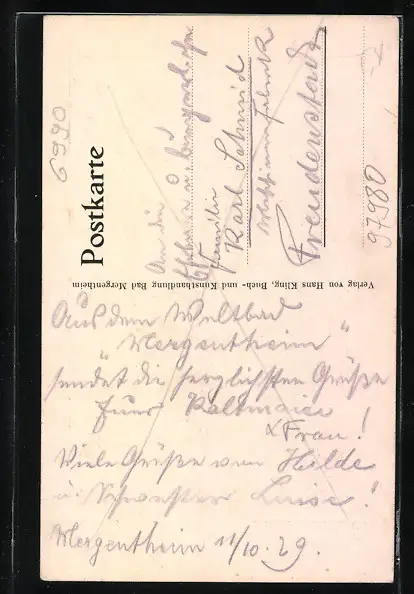 Postkarte
6990
An die
Familie
Karl Schmid
Freudenstadt
97980
Verlag von Hans Kling, Buch- und Kunsthandlung Bad Mergentheim
Aus dem Weltbad
"Mergentheim"
sendet die herzlichsten Grüße
Frau!
Viele Grüße von Hilde
u. Schwester Luise!
Mergentheim 11/10.29.